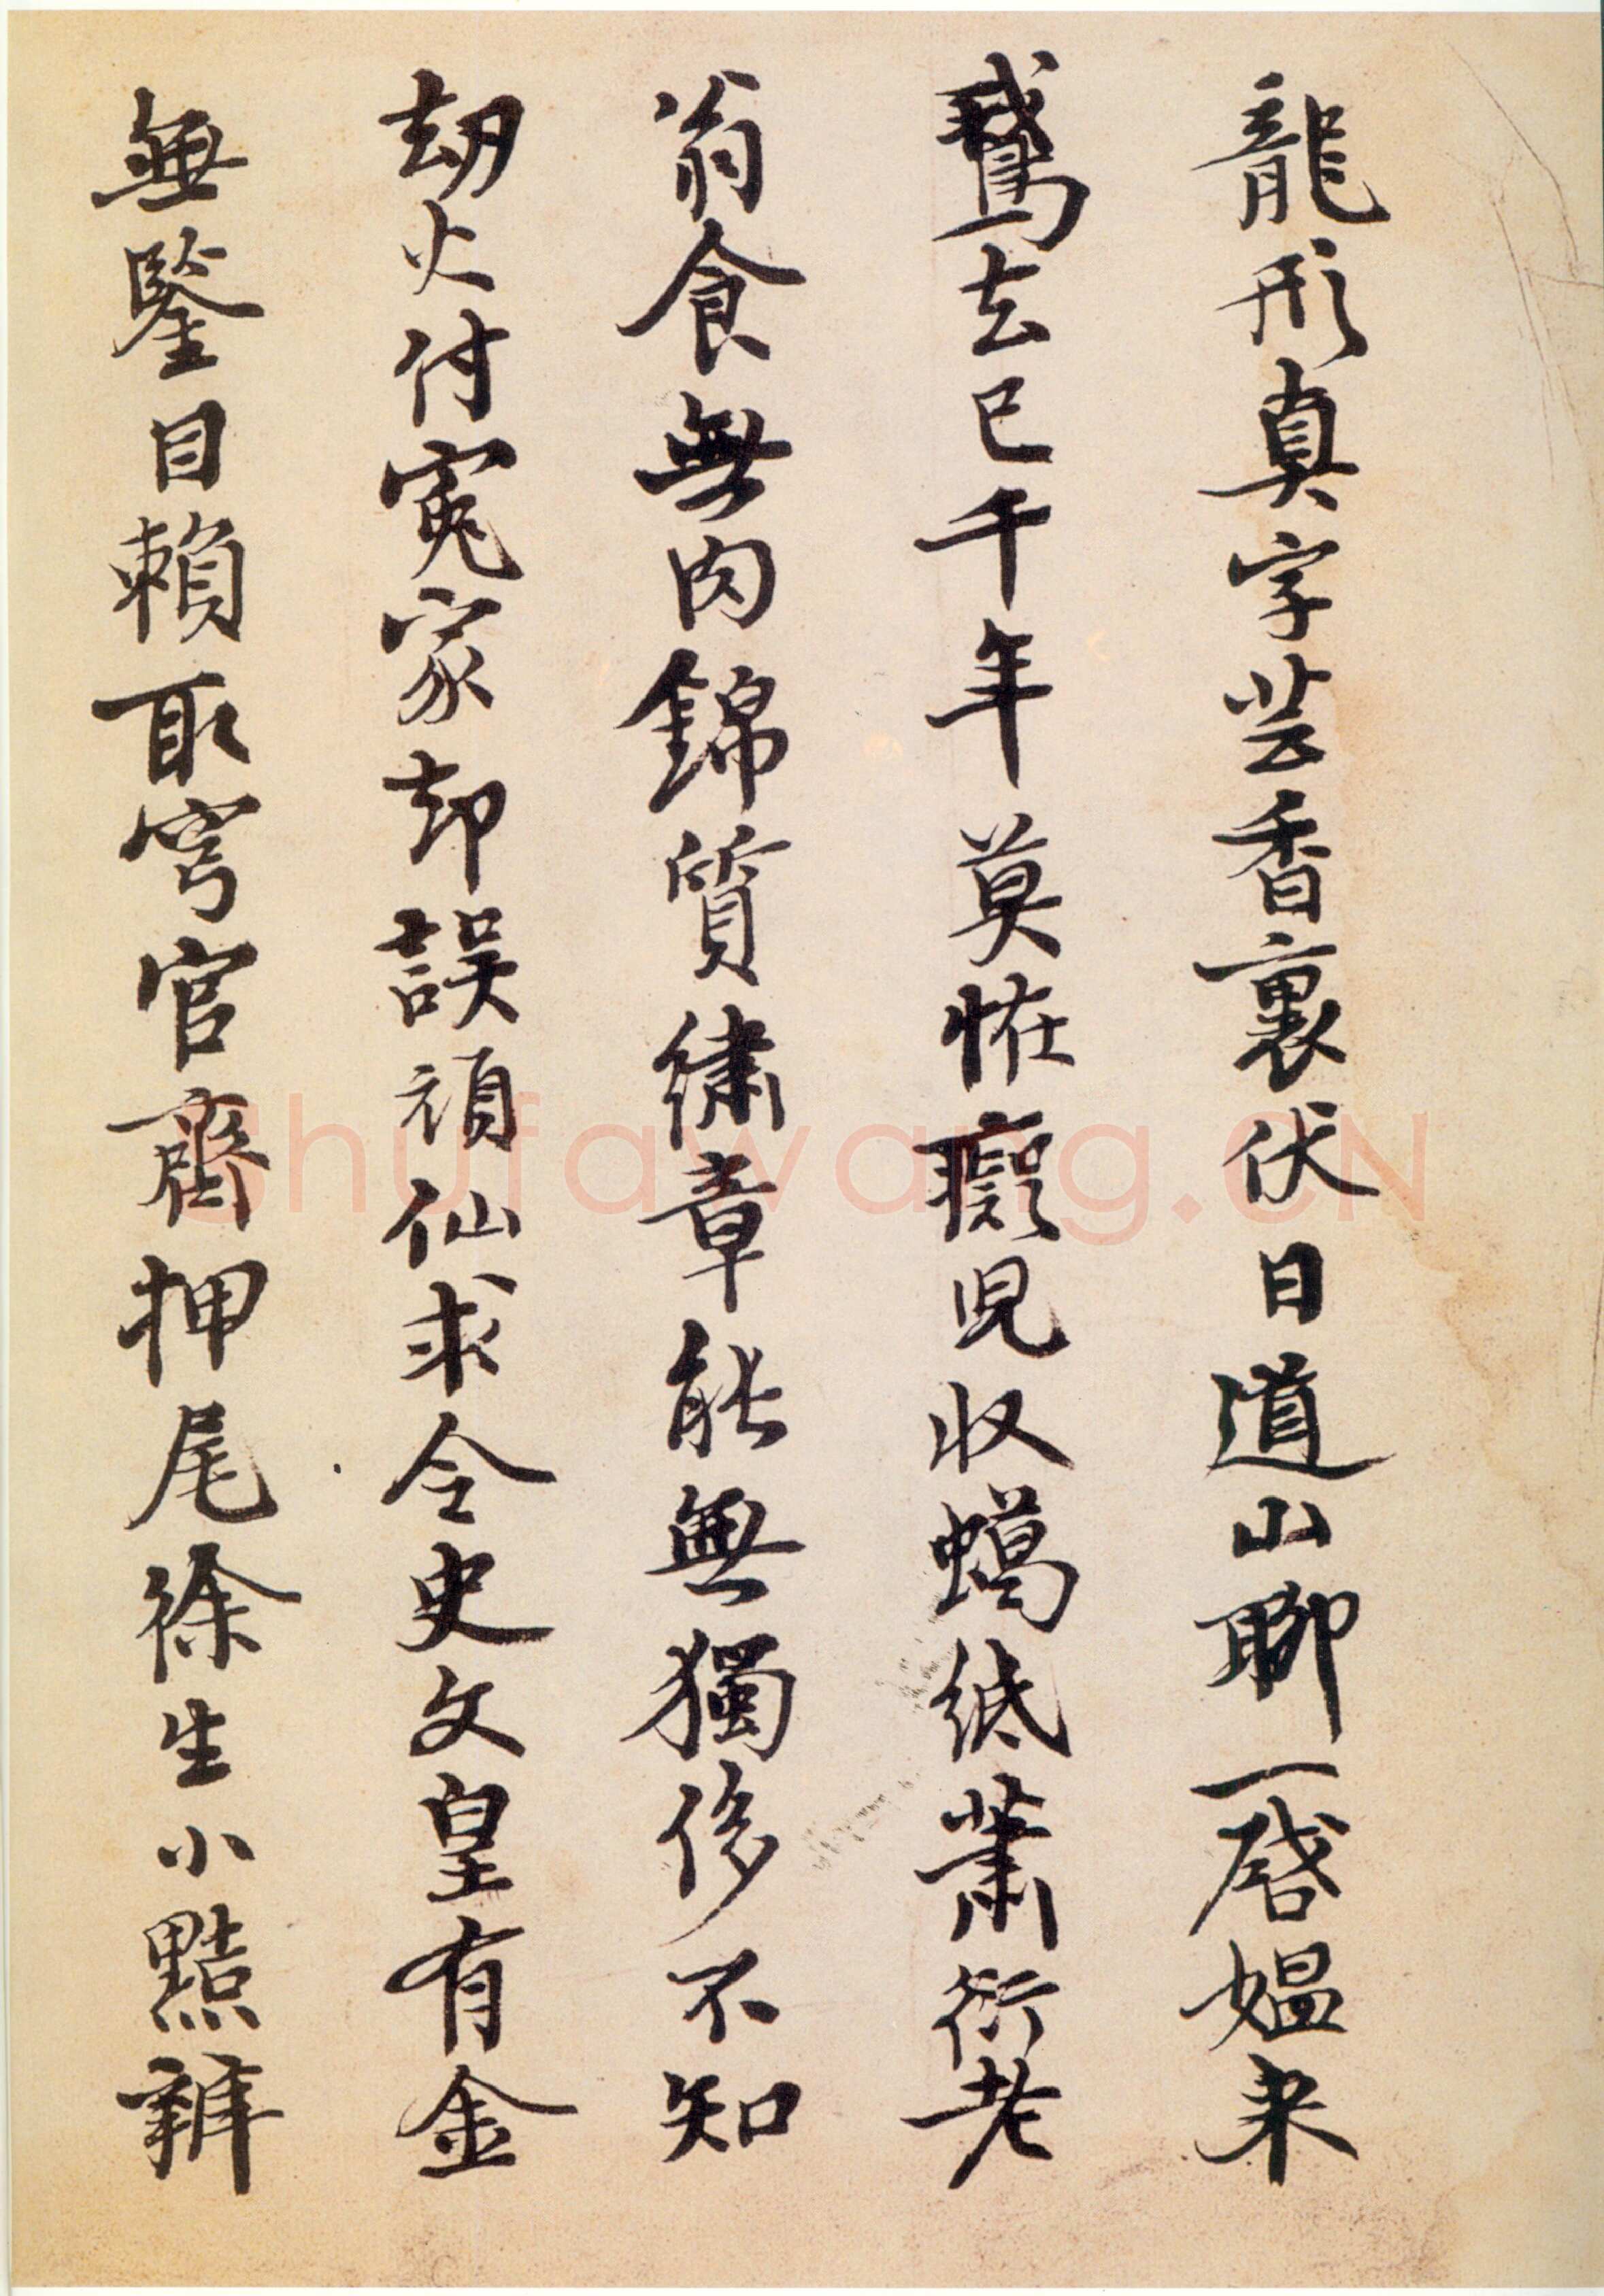 龍形真字芸香裏伏日道山聊一啓媼来
鵞去已千年莫恠癡児収蠟紙蕭衍老
翁食無肉錦質繡章能無獨侈不知
劫火付寃家却誤頑仙求令史文皇有金
無鑒目賴取穹官齊押尾徐生小黠辨
Shufawang.CN